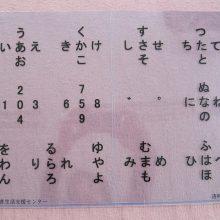 う く す つ
いあえ きかけ しさせ たて
お こ そ と
2 7 ぬ
103 658 ゛ ゜ になね
4 9 の
を る ゆ む ふ
わ られ や まめ ひはへ
ん ろ よ も ほ
者生活支援センター